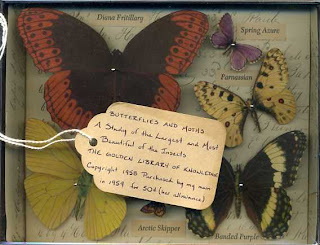 Diana Fritillary
Spring Azure
Parnassian
BUTTERFLIES AND MOTHS
A Study of the Largest and Most
Beautiful of the Insects
THE GOLDEN LIBRARY OF KNOWLEDGE
Copyright 1958 Purchased by my mom
in 1959 for 50¢ (her allowance)
Arctic Skipper
Banded Purple